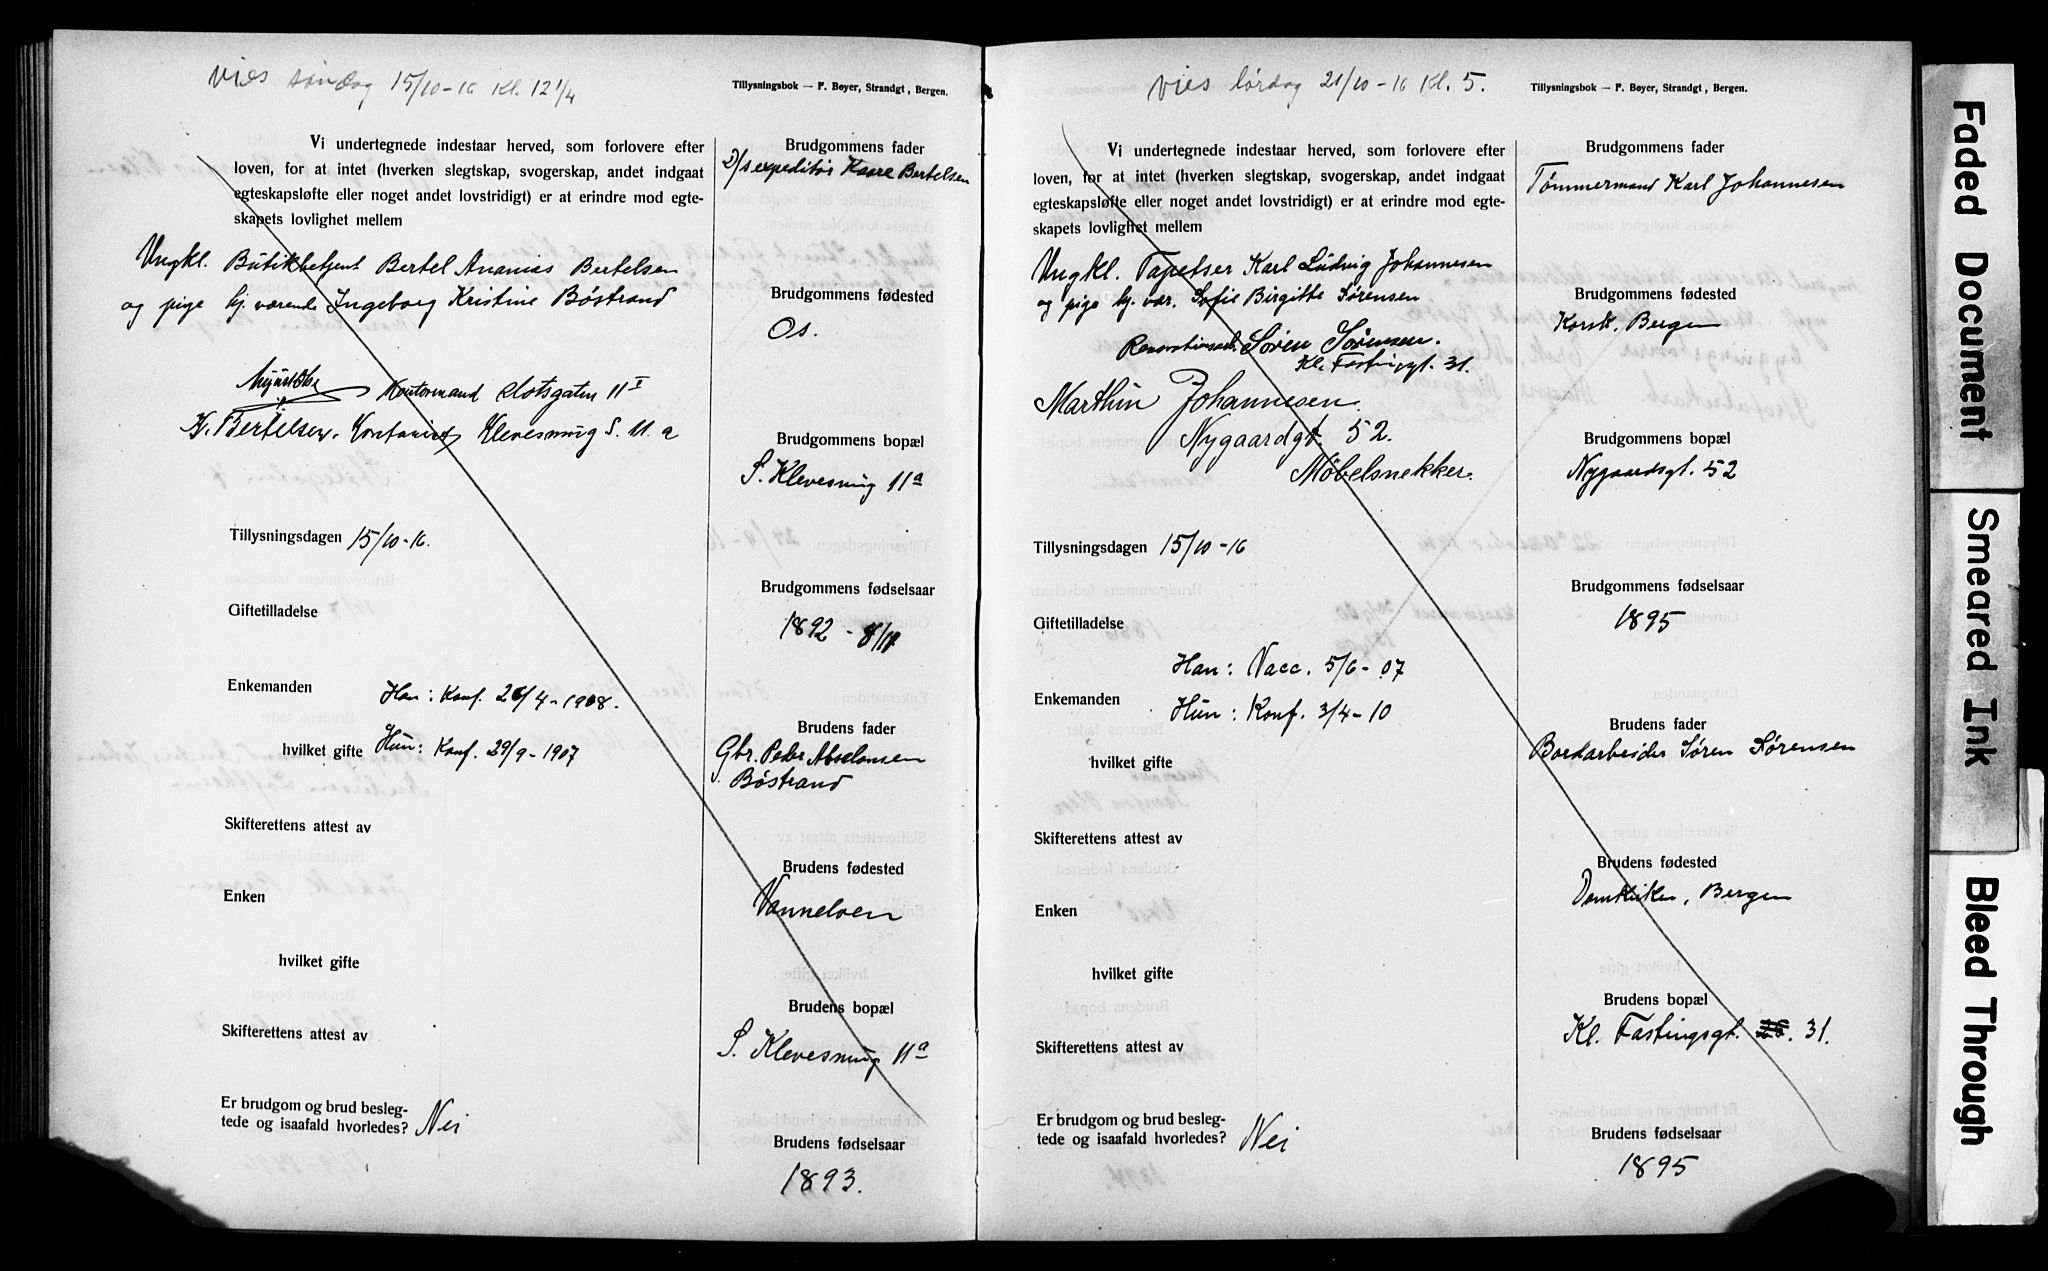 Vies søndag 15/10-16 Kl. 12 1/4
Tillysningsbok — F. Bøyer, Strandgt, Bergen.
Vi undertegnede indestaar herved, som forlovere efter
loven, for at intet (hverken slegtskap, svogerskap, andet indgaat
egteskapsløfte eller noget andet lovstridigt) er at erindre mod egte-
skapets lovlighet mellem
Ungkl. Butikbetjent Bertel Ananias Bertelsen
og pige hj. værende Ingeborg Kristine Bøstrand
Kontormand Slotsgaten 11 I
K. Bertelsen. Kontorist Klevesmug S. 11 a
Tillysningsdagen 15/10-16.
Giftetilladelse
Enkemanden Han: Konf. 26/4-1908.
hvilket gifte Hun: Konf. 29/9-1907
Skifterettens attest av
Enken
hvilket gifte
Skifterettens attest av
Er brudgom og brud besleg-
tede og isaafald hvorledes? Nei
Brudgommens fader
D/s expeditør Kaare Bertelsen
Brudgommens fødested
Os.
Brudgommens bopæl
S. Klevesmug 11a
Brudgommens fødselsaar
1892 - 8/11
Brudens fader
Gbr. Peder Absalonsen
Bøstrand
Brudens fødested
Vannelven
Brudens bopæl
S. Klevesmug 11a
Brudens fødselsaar
1893.
Vies lørdag 21/10-16 Kl. 5.
Tillysningsbok — F. Bøyer, Strandgt, Bergen.
Vi undertegnede indestaar herved, som forlovere efter
loven, for at intet (hverken slegtskap, svogerskap, andet indgaat
egteskapsløfte eller noget andet lovstridigt) er at erindre mod egte-
skapets lovlighet mellem
Ungkl. Tapetser Karl Ludvig Johannesen
og pige hj. vær. Sofie Birgitte Sørensen
Søren Sørensen.
Kl. Fastingsgt. 31.
Marthin Johannesen.
Nygaardgt. 52.
Møbelsnekker.
Tillysningsdagen 15/10-16
Giftetilladelse
Han: Vacc. 5/6-07
Enkemanden
Hun: Konf. 3/4-10
hvilket gifte
Skifterettens attest av
Enken
hvilket gifte
Skifterettens attest av
Er brudgom og brud besleg-
tede og isaafald hvorledes? Nei
Brudgommens fader
Tømmermand Karl Johannesen
Brudgommens fødested
Korsk. Bergen
Brudgommens bopæl
Nygaardsgt. 52
Brudgommens fødselsaar
1895
Brudens fader
Bordarbeider Søren Sørensen
Brudens fødested
Domkirken, Bergen
Brudens bopæl
Kl. Fastingsgt. 31.
Brudens fødselsaar
1895
Faded Document
Smeared Ink
Bleed Through